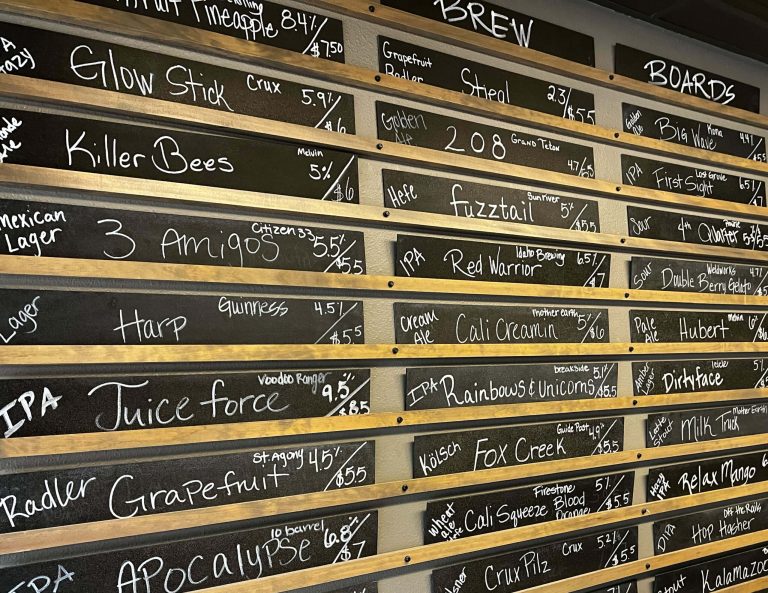 Pineapple 8.4% $7.50
Glow Stick Crux 5.9% $6
Killer Bees Melvin 5% $6
Mexican Lager 3 Amigos Citizen 33 5.5% $5.5
Lager Harp Guinness 4.5% $5.5
IPA Juice force Voodoo Ranger 9.5% $8.5
Radler Grapefruit St. Agony 4.5% $5.5
IPA Apocalypse 10 barrel 6.8% $7
BREW
Grapefruit Radler Stiegl 2.3 $5.5
Golden Ale 208 Grand Teton 4.7
Hefe fuzztail Sunriver 5%
IPA Red Warrior Idaho Brewing 6.5% $7
Cream Ale Cali Creamin mother earth 5% $6
IPA Rainbows & Unicorns breakside 5.1% $5.5
Kölsch Fox Creek Guide Post 4.9%
Wheat ale Cali Squeeze Blood Orange Firestone 5% $5.5
Crux Pilz Crux 5.2% $5.5
BOARDS
Golden Ale Big Wave Kona 4.4% $5.5
IPA First Sight Lost Grove 6.5% $7
Sour 4th Quarter
Sour Double Berry Gelato Weldworks 4.7
Pale Ale Hubert Melvin 6%
Amber Lager Dirtyface 5%
Latte Stout Milk Truck Mother Earth
Hazy IPA Relax Mango
DIPA Hop Hasher Off the Rails
Kalamazoo